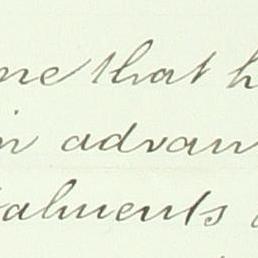 me that h
in advan
talments